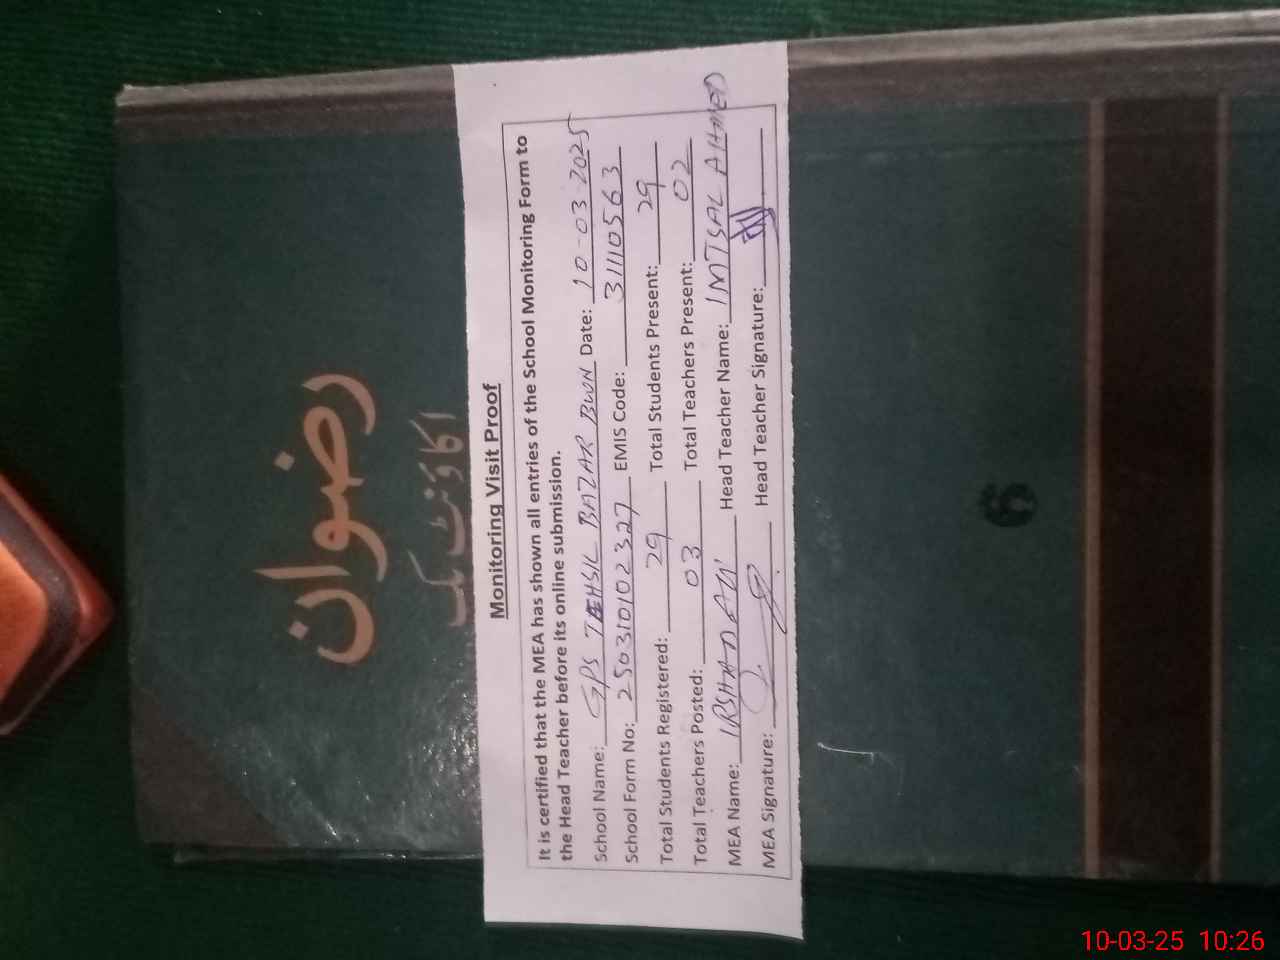 رضوان
اکاؤنٹ بک
Monitoring Visit Proof
It is certified that the MEA has shown all entries of the School Monitoring Form to
the Head Teacher before its online submission.
School Name: GPS TEHSIL BAZAR BWN Date: 10-03-2025
School Form No: 250310102327 EMIS Code: 31110563
Total Students Registered: 29 Total Students Present: 29
Total Teachers Posted: 03 Total Teachers Present: 02
MEA Name: IRSHAD ALI Head Teacher Name: IMTSAL AHMED
MEA Signature: Head Teacher Signature:
6
10-03-25 10:26